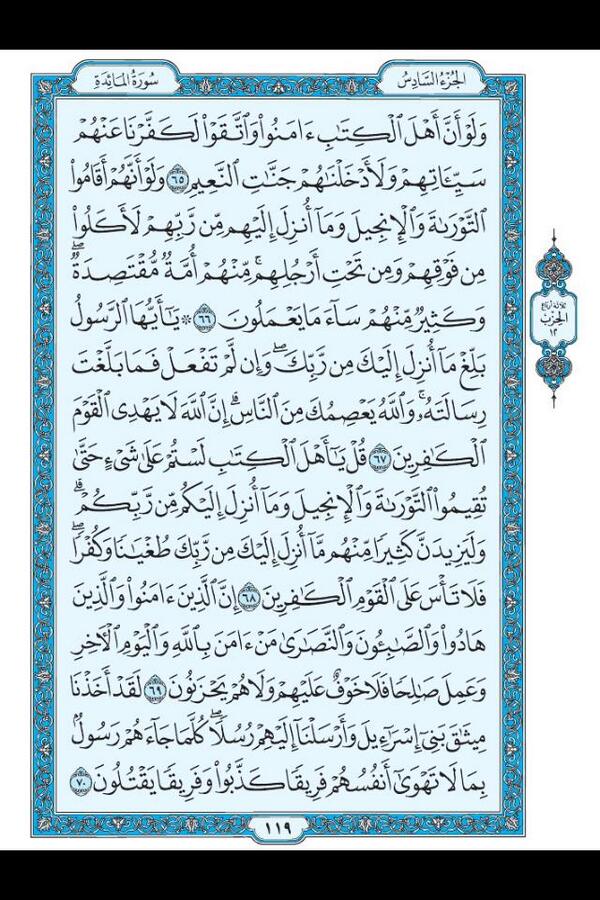 الجُزْءُ السَّادِسُ
سُورَةُ المَائِدَةِ
وَلَوْ أَنَّ أَهْلَ ٱلْكِتَٰبِ ءَامَنُوا۟ وَٱتَّقَوْا۟ لَكَفَّرْنَا عَنْهُمْ
سَيِّـَٔاتِهِمْ وَلَأَدْخَلْنَٰهُمْ جَنَّٰتِ ٱلنَّعِيمِ ٦٥ وَلَوْ أَنَّهُمْ أَقَامُوا۟
ٱلتَّوْرَىٰةَ وَٱلْإِنجِيلَ وَمَآ أُنزِلَ إِلَيْهِم مِّن رَّبِّهِمْ لَأَكَلُوا۟
مِن فَوْقِهِمْ وَمِن تَحْتِ أَرْجُلِهِم ۚ مِّنْهُمْ أُمَّةٌ مُّقْتَصِدَةٌ ۖ
وَكَثِيرٌ مِّنْهُمْ سَآءَ مَا يَعْمَلُونَ ٦٦ ۞ يَٰٓأَيُّهَا ٱلرَّسُولُ
بَلِّغْ مَآ أُنزِلَ إِلَيْكَ مِن رَّبِّكَ ۖ وَإِن لَّمْ تَفْعَلْ فَمَا بَلَّغْتَ
رِسَالَتَهُۥ ۚ وَٱللَّهُ يَعْصِمُكَ مِنَ ٱلنَّاسِ ۗ إِنَّ ٱللَّهَ لَا يَهْدِى ٱلْقَوْمَ
ٱلْكَٰفِرِينَ ٦٧ قُلْ يَٰٓأَهْلَ ٱلْكِتَٰبِ لَسْتُمْ عَلَىٰ شَىْءٍ حَتَّىٰ
تُقِيمُوا۟ ٱلتَّوْرَىٰةَ وَٱلْإِنجِيلَ وَمَآ أُنزِلَ إِلَيْكُم مِّن رَّبِّكُمْ ۗ
وَلَيَزِيدَنَّ كَثِيرًا مِّنْهُم مَّآ أُنزِلَ إِلَيْكَ مِن رَّبِّكَ طُغْيَٰنًا وَكُفْرًا ۖ
فَلَا تَأْسَ عَلَى ٱلْقَوْمِ ٱلْكَٰفِرِينَ ٦٨ إِنَّ ٱلَّذِينَ ءَامَنُوا۟ وَٱلَّذِينَ
هَادُوا۟ وَٱلصَّٰبِـُٔونَ وَٱلنَّصَٰرَىٰ مَنْ ءَامَنَ بِٱللَّهِ وَٱلْيَوْمِ ٱلْـَٔاخِرِ
وَعَمِلَ صَٰلِحًا فَلَا خَوْفٌ عَلَيْهِمْ وَلَا هُمْ يَحْزَنُونَ ٦٩ لَقَدْ أَخَذْنَا
مِيثَٰقَ بَنِىٓ إِسْرَٰٓءِيلَ وَأَرْسَلْنَآ إِلَيْهِمْ رُسُلًا ۖ كُلَّمَا جَآءَهُمْ رَسُولٌۢ
بِمَا لَا تَهْوَىٰٓ أَنفُسُهُمْ فَرِيقًا كَذَّبُوا۟ وَفَرِيقًا يَقْتُلُونَ ٧٠
ثلاثة أرباع
الحزب
١٢
١١٩